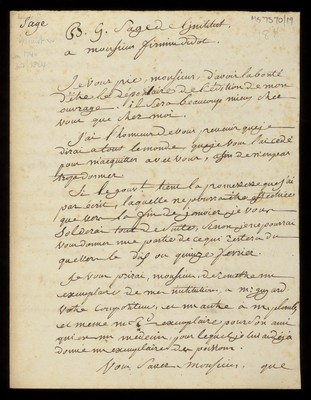 Sage
Ms 7370/19
B. G. Sage de l'institut,
a monsieur firmin didot.
Je vous prie, monsieur, d'avoir la bonté
d'être le dépositaire de l'édition de mon
ouvrage. il sera beaucoup mieux chez
vous que chez moi.
J'ai l'honneur de vous prevenir que je
dirai a tout le monde que je vous l'ai cédé
pour m'acquitter avec vous, afin de n'en pas
donner.
Si le gouvt tient la promesse que j'ai
par écrit, laquelle ne pourra être effectuée
que vers la fin de janvier je vous
solderai tout de suite, sinon je ne pourai
vous donner une partie de ce qui restera du
que vers le dix ou quinze fevrier.
Je vous prirai, monsieur, de remettre un
exemplaire de mes institutions, a mr guyard
votre compositeur, et un autre à
et meme un exemplaire pour son ami
qui est un médecin, pour lequel je lui ai déjà
donné un exemplaire des poisons.
Vous savez monsieur, que